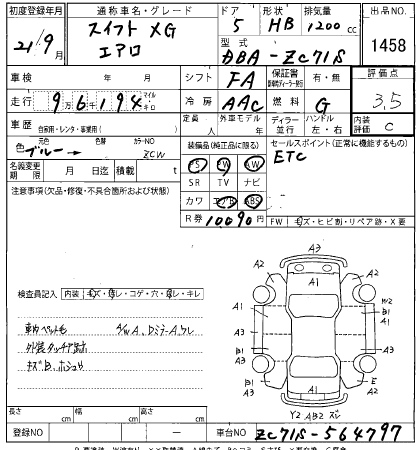 初度登録年月 通称車名・グレード ドア 形状 排気量 出品NO.
21/9月 スイフト XG エアロ 5 HB 1200 cc 1458
型式 DBA-ZC71S
車検 年 月 シフト FA 保証書 有・無 評価点
走行 9 6 194 マイル キロ 冷房 AAC 燃料 G 3.5
車歴 自家用・レンタ・事業用( ) 定員 人 外車モデル ディーラー 並行 ハンドル 左・右 内装評価 C
色 ブルー→ 色替 カラーNO ZCW
装備品(純正品に限る) セールスポイント(正常に機能するもの)
PS PW AW ETC
名義変更期限 月 日迄 積載 t SR TV ナビ
注意事項(欠品・修復・不具合箇所および状態) カワ エアB ABS
R券 10090円 FW キズ・ヒビ割・リペア跡・X要
A3
A2 A2
A1
検査員記入 内装 キズ・汚レ・コゲ・穴・スレ・キレ
W2
A1 B1
A1
車内ペット毛 S/W A、Dミラースレ
A3 A3
外装タッチ跡
A1
キズB、ホシュウ
B1 B1
A3 A2 E
A2
Y2 AB2
長さ cm 幅 cm 高さ cm
登録NO - 車台NO ZC71S-564797